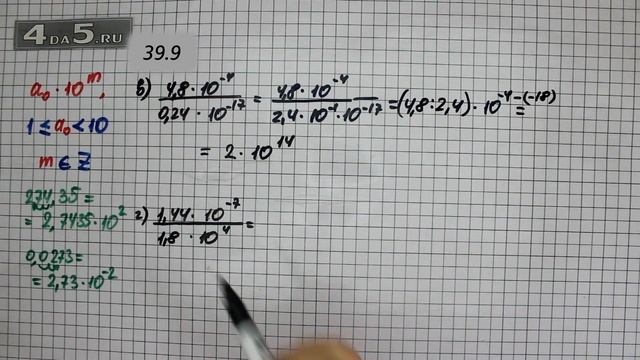 4DA5.RU
39.9
a₀ · 10ᵐ,
1 ≤ a₀ < 10
m ∈ Z
274,35 =
= 2,7435 · 10²
0,0273 =
= 2,73 · 10⁻²
в) (4,8 · 10⁻⁴)/(0,24 · 10⁻¹⁷) = (4,8 · 10⁻⁴)/(2,4 · 10⁻¹ · 10⁻¹⁷) = (4,8 : 2,4) · 10⁻⁴⁻⁽⁻¹⁸⁾ =
= 2 · 10¹⁴
г) (1,44 · 10⁻⁷)/(1,8 · 10⁴) =